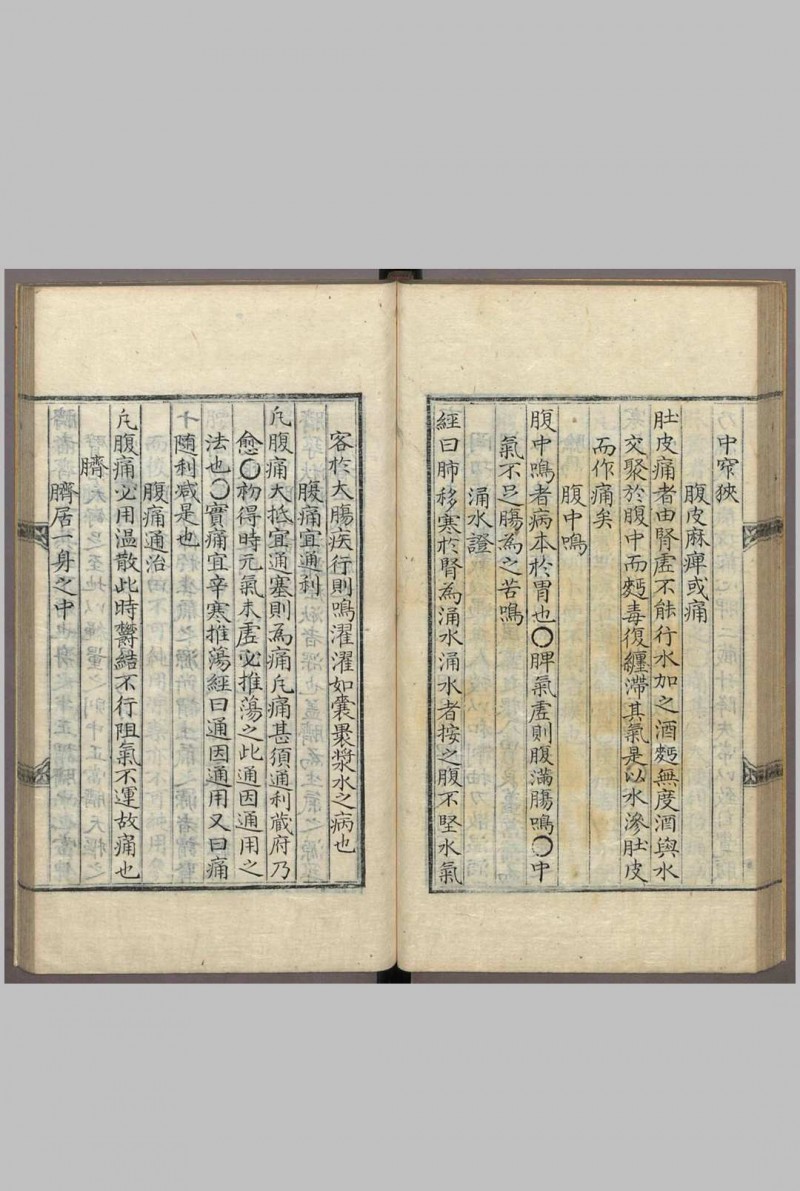 中窄狹
腹皮麻痺或痛
肚皮痛者由腎虛不能行水加之酒麪無度酒與水
交聚於腹中而麪毒復纏滯其氣是以水滲肚皮
而作痛矣
腹中鳴
腹中鳴者病本於胃也〇脾氣虛則腹滿腸鳴〇中
氣不足腸為之苦鳴
涌水證
經曰肺移寒於腎為涌水涌水者按之腹不堅水氣
客於大腸疾行則鳴濯濯如囊裹漿水之病也
腹痛宜通利
凡腹痛大抵宜通塞則為痛凡痛甚須通利藏府乃
愈〇初得時元氣未虛必推蕩之此通因通用之
法也〇實痛宜辛寒推蕩經曰通因通用又曰痛
隨利减是也
腹痛通治
凡腹痛必用溫散此時欎結不行阻氣不運故痛也
臍
臍居一身之中